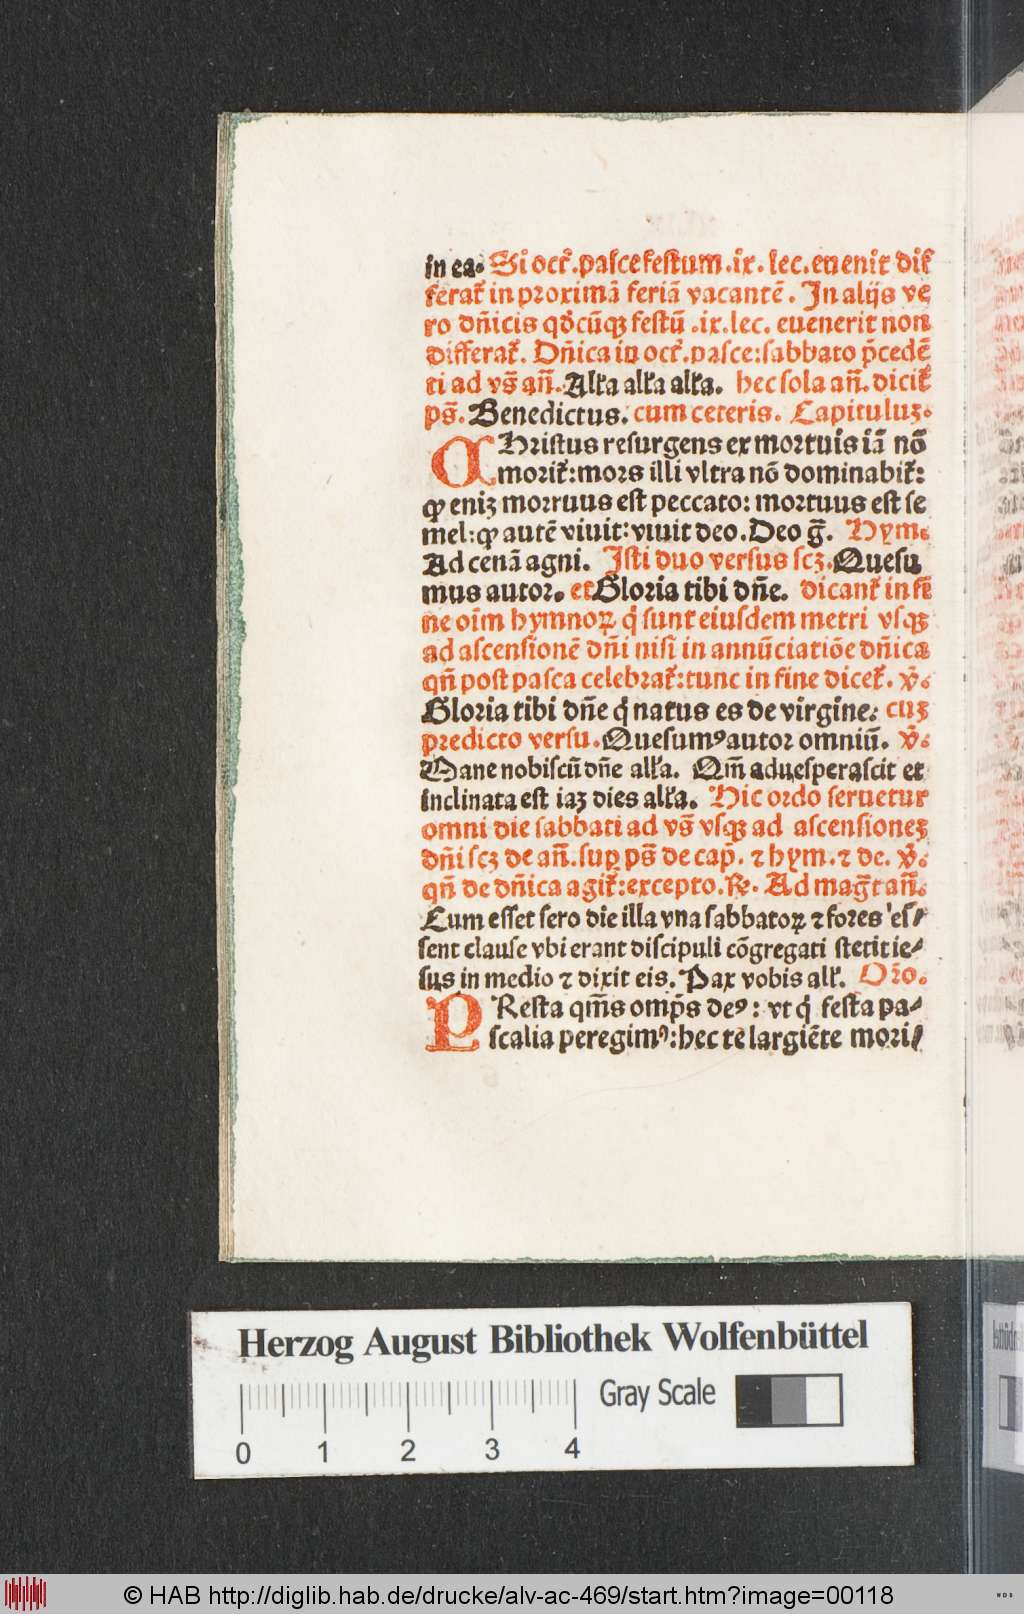 in ea. Si oct᷑. pasce festum .ix. lec. euenit dif
ferat᷑ in proximā feriā vacantē. In alijs ve
ro dn̄icis qđcūqꝫ festū .ix. lec. euenerit non
differat᷑. Dn̄ica in oct᷑. pasce: sabbato p̄cedē
ti ad vs̄ an̄. Alľa alľa alľa. hec sola an̄. dicit᷑
ps̄. Benedictus. cum ceteris. Capituluꝫ.
CHristus resurgens ex mortuis iā nō
morit᷑: mors illi vltra nō dominabit᷑:
ꝙ eniꝫ morruus est peccato: mortuus est se
mel: ꝙ autē viuit: viuit deo. Deo g̃. Hym.
Ad cenā agni. Isti duo versus scꝫ. Quesu
mus autor. et Gloria tibi dn̄e. dicant᷑ in fi
ne oīm hymnoꝝ q̇ sunt eiusdem metri vsqꝫ
ad ascensionē dn̄i nisi in annūciatiōe dn̄ica
qn̄ post pasca celebrat᷑: tunc in fine dicet᷑. v̊.
Gloria tibi dn̄e q̇ natus es de virgine: cuꝫ
predicto versu. Quesumꝰ autor omniū. v̊.
Mane nobiscū dn̄e alľa. Qm̄ aduesperascit et
inclinata est iaꝫ dies alľa. Hic ordo seruetur
omni die sabbati ad vs̄ vsqꝫ ad ascensioneꝫ
dn̄i scꝫ de an̄. suꝑ ps̄ de cap̄. ⁊ hym. ⁊ de. v̊.
qn̄ de dn̄ica agit᷑: excepto. ℞. Ad mag̃t an̄.
Cum esset sero die illa vna sabbatoꝝ ⁊ fores es⸗
sent clause vbi erant discipuli cōgregati stetit ie⸗
sus in medio ⁊ dixit eis. Pax vobis alľ. Or̄o.
PResta qm̄s omp̄s deꝰ: vt q̇ festa pa⸗
scalia peregimꝰ: hec te largiēte mori⸗
Herzog August Bibliothek Wolfenbüttel
Gray Scale
0 1 2 3 4
© HAB http://diglib.hab.de/drucke/alv-ac-469/start.htm?image=00118